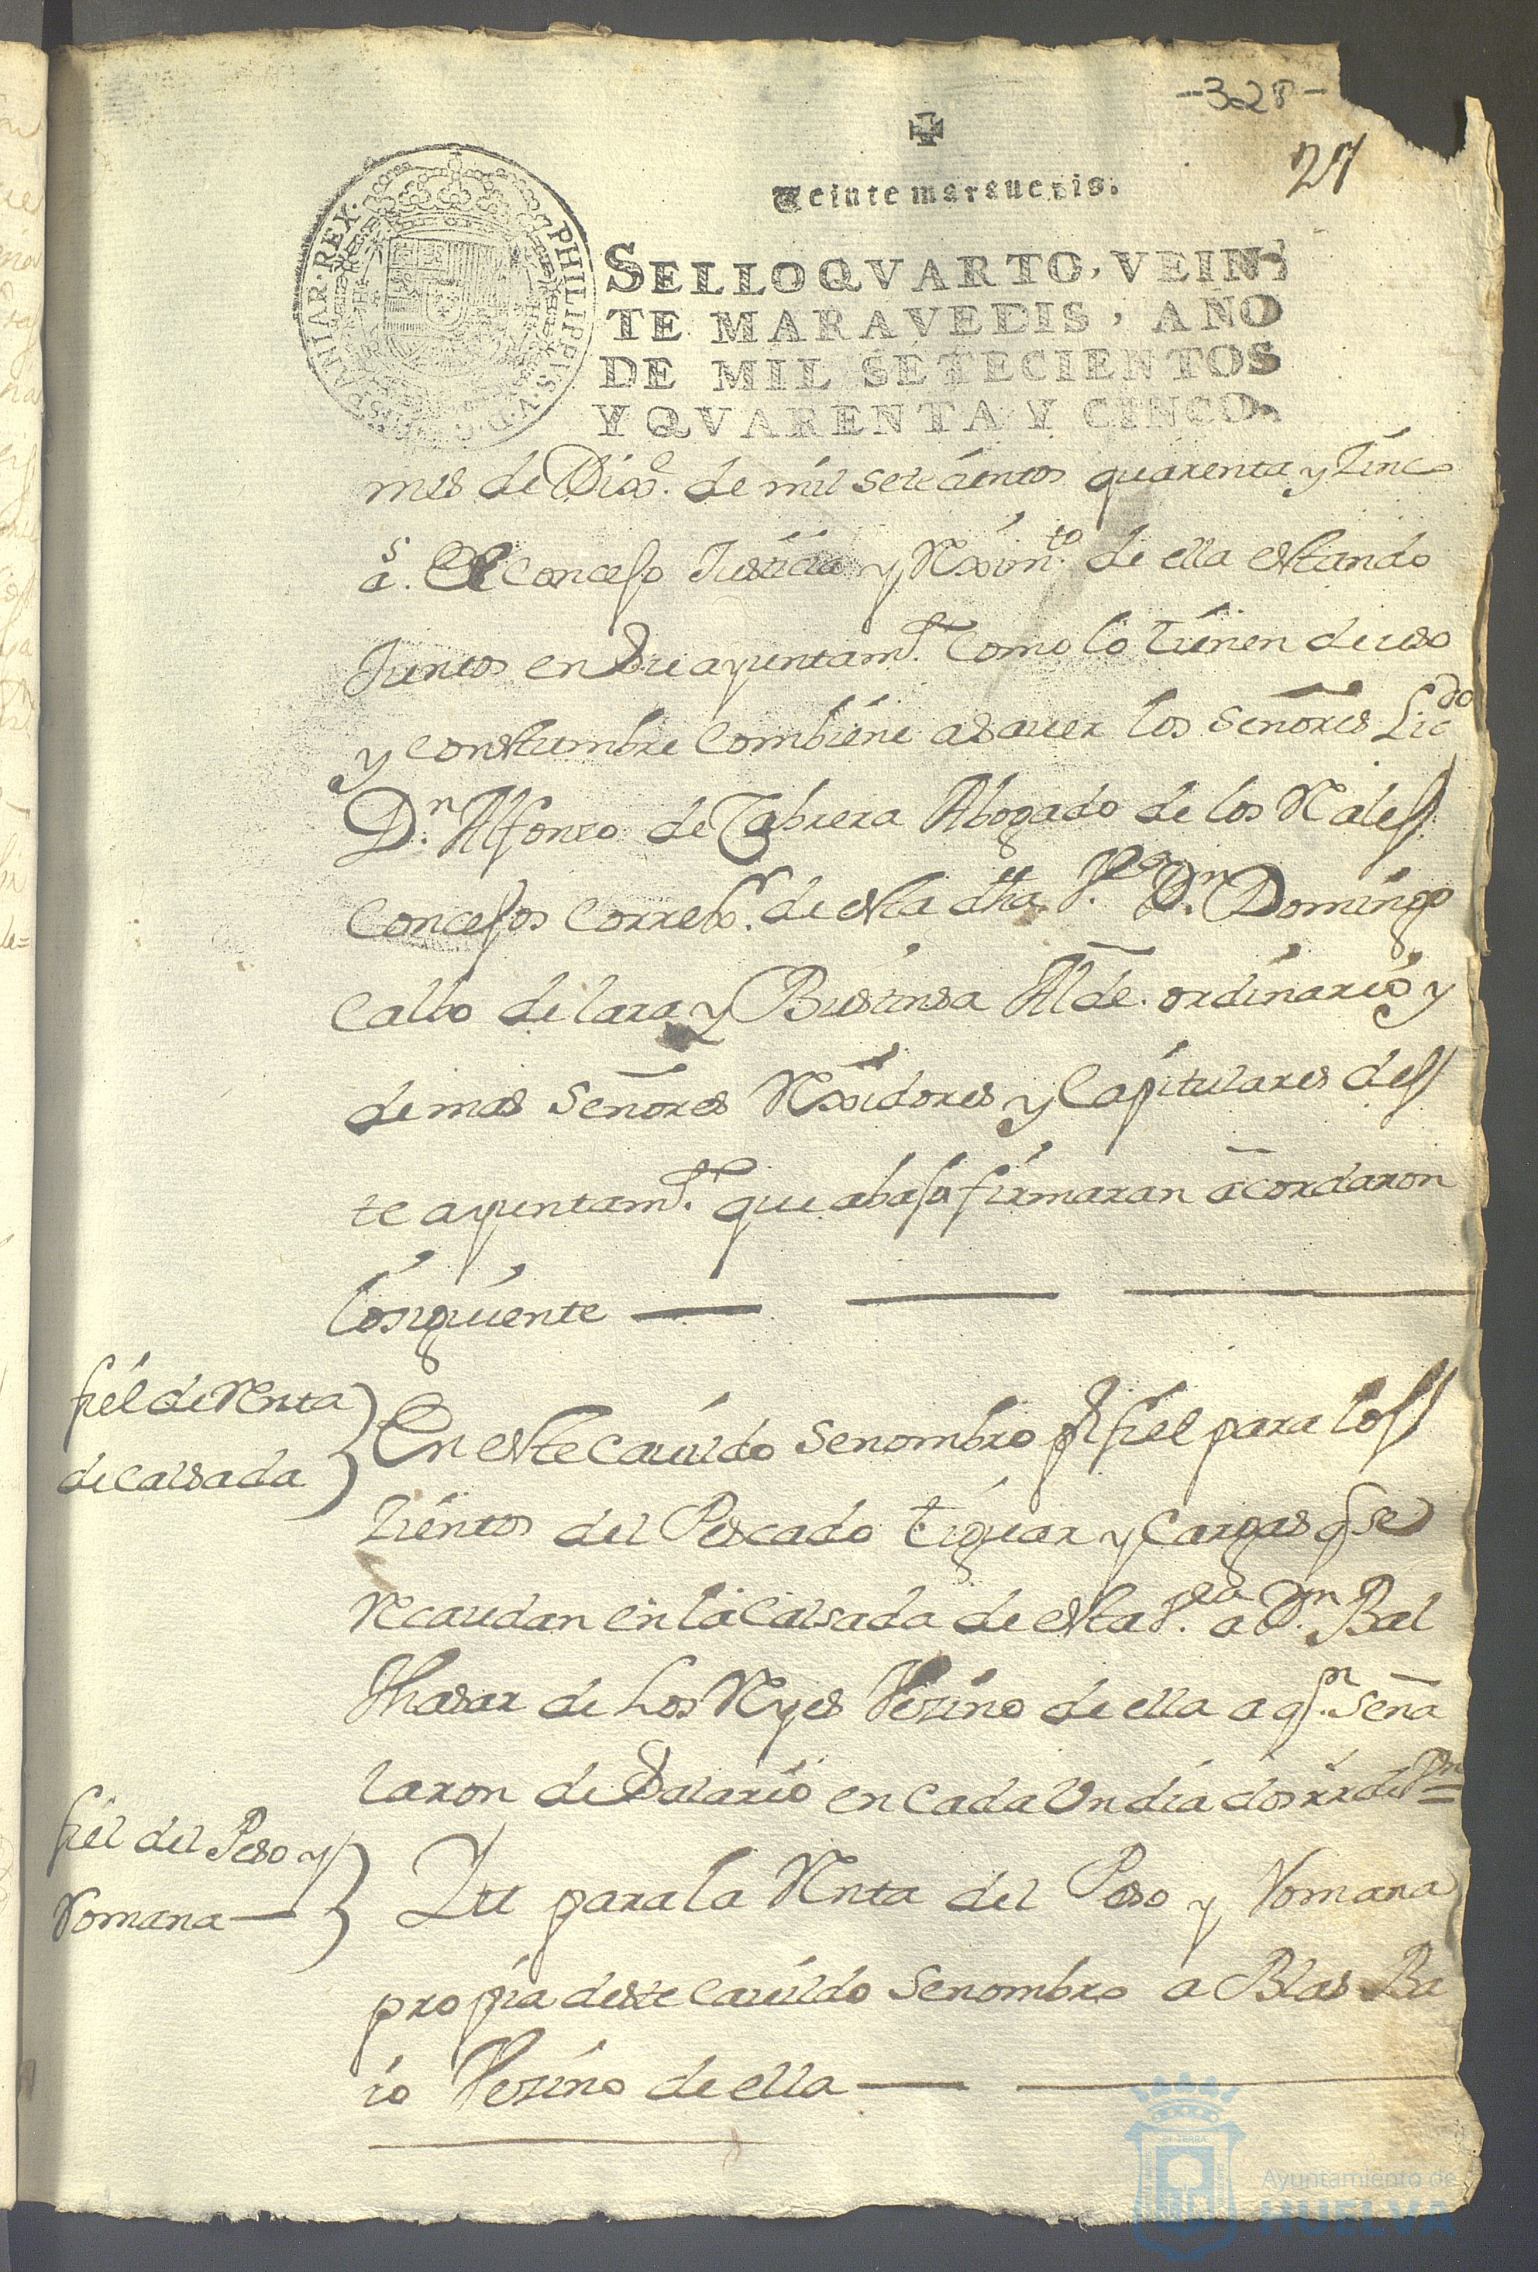 -328-
27
Veinte maravedis.
SELLO QVARTO, VEIN-
TE MARAVEDIS, AÑO
DE MIL SETECIENTOS
Y QVARENTA Y CINCO.
PHILIPPVS.V.D.G. HISPANIAR.REX.
mes de Dizᵉ. de mil setecientos quarenta y Zinco
aˢ. El Concejo Justicia y Reximᵗᵒ. de ella estando
Juntos en Su ayuntamᵗᵒ. Como lo tienen de uso
y Constumbre Combiene a sauer los Señores Licᵈᵒ
Dⁿ. Alfonso de Cabrera Abogado de los Rales
Concejos Correxᵒʳ. de esta dha Vᵃ. Dⁿ. Domingo
Calbo de lara y Businsa Alde. ordinario y
demas Señores Rexidores y Capitulares des
te ayuntamᵗᵒ. que abajo firmaran acordaron
lo siguiente
fiel de Renta
de calsada
En este Cauildo se nombro pʳ fiel para los
Zientos del Pescado tiguar y Cargas q se
Recaudan en la Calsada de esta Vᵃ. a Dⁿ. Bal
thasar de Los Reyes Vezino de ella a qⁿ. Seña
laron de Salario en Cada Un dia dos rrˢ de
fiel del Peso y
Romana
Itt para la Renta del Peso y Romana
propia deste Cauildo se nombro a Blas Ba
io Vezino de ella
Ayuntamiento de
HUELVA